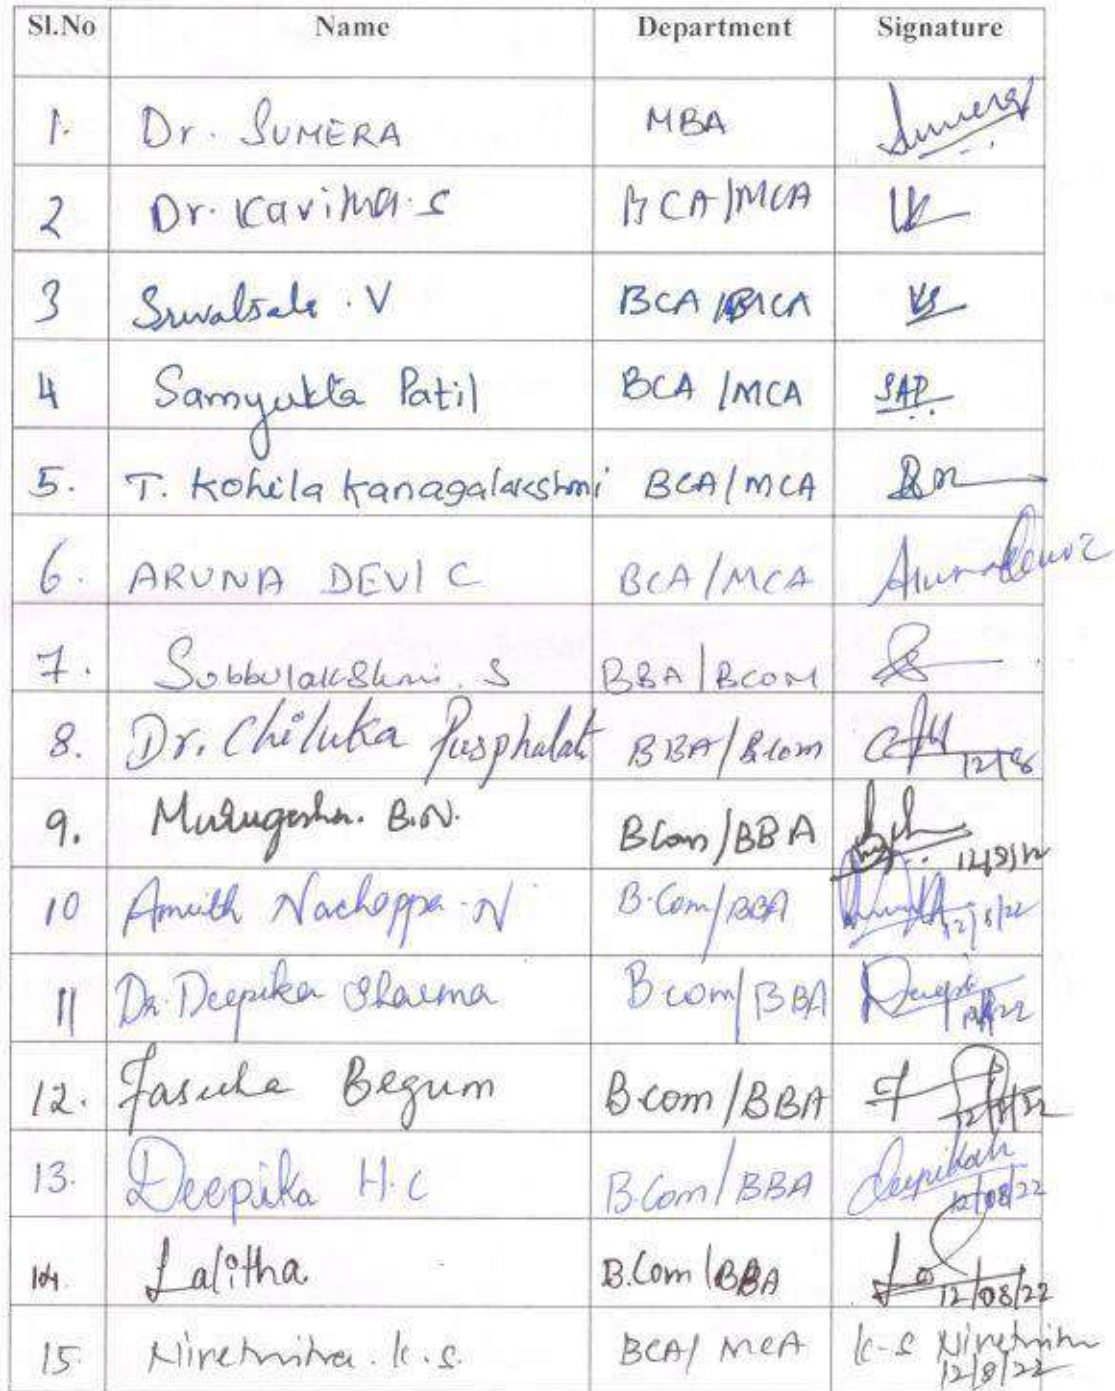 Sl.No Name Department Signature
1. Dr. SUMERA MBA Sumera
2 Dr. Kavitha. S BCA/MCA
3 Srivatsala . V BCA/MCA VS
4 Samyukta Patil BCA /MCA SAP
5. T. Kohila Kanagalakshmi BCA/MCA
6. ARUNA DEVI C BCA/MCA Arunadevi C
7. Sobbulakshmi. S BBA/BCOM
8. Dr. Chiluka Pusphalat BBA/B.com 12/8
9. Murugesha. B.N. BCom/BBA 12/8/22
10 Amith Nachappa. N B.Com/BBA 12/8/22
11 Dr. Deepika Sharma Bcom/BBA Deepika
12. Begum B.com/BBA 12/8/22
13. Deepika H.C B.Com/BBA Deepikah 12/08/22
14. Lalitha B.Com/BBA 12/08/22
15 K.S. BCA/ MCA K-S 12/8/22